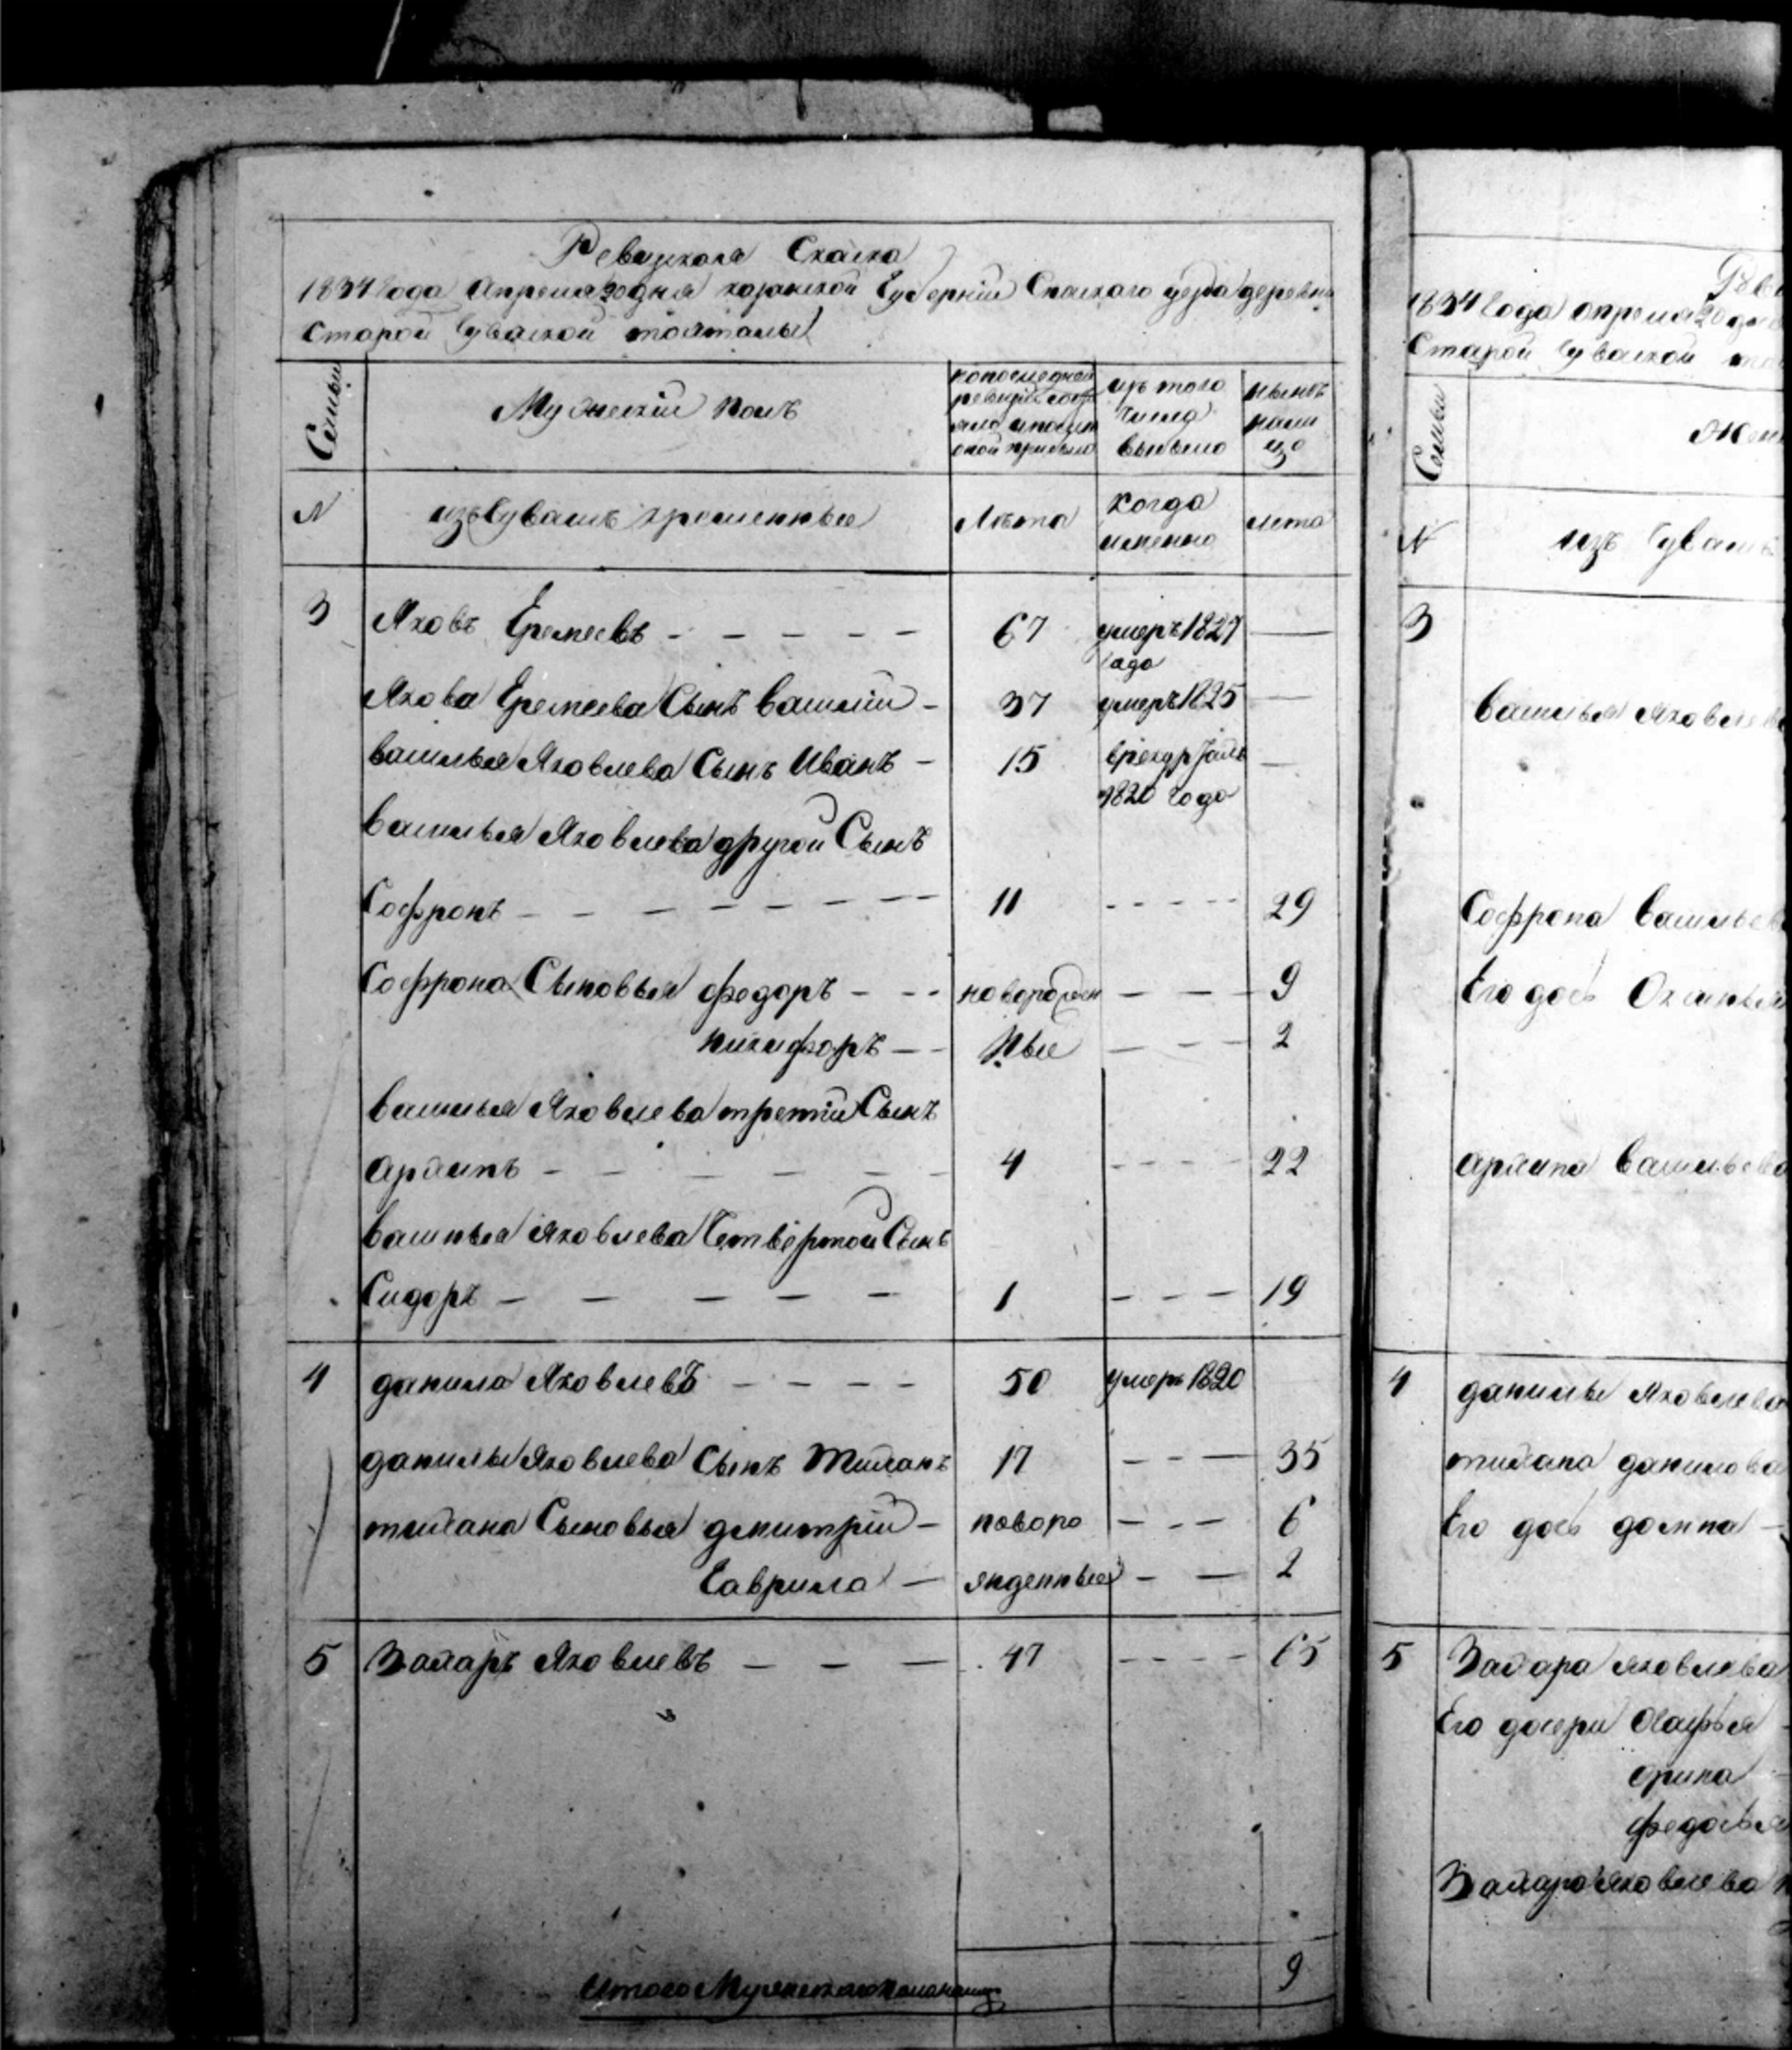 Ревизская Сказка
1834 года Апреля 20 дня казанской Губернии Спаскаго уезда деревни
Старой Чуваской
Семьи
Мужескій полъ
по последней ревизіи состояло и после оной прибыло
изъ того числа выбыло
ныне на лицо
№
изъ Чувашъ крещенные
Лѣта
когда именно
лета
3
Яковъ Еремеевъ
67
умеръ 1827 года
Якова Еремеева Сынъ василій
37
умеръ 1825
василья Яковлева Сынъ Иванъ
15
1820 года
василья Яковлева другой Сынъ
Софронъ
11
29
Софрона Сыновья федоръ
новорожден
9
никифоръ
ные
2
василья Яковлева третій Сынъ
архипъ
4
22
василья яковлева Четвертой Сынъ
Сидоръ
1
19
4
данила Яковлевъ
50
умеръ 1820
данилы Яковлева Сынъ
17
35
Сыновья дмитрій
новоро
6
Гаврила
жденные
2
5
Захаръ Яковлевъ
47
65
Итого Мужескаго пола налицо
9
1834 года апреля 20 дня
Старой Чуваской
Семьи
№
изъ Чувашъ
3
василья яковлева
Софрона васильева
Его дочь
архипа васильева
4
данилы яковлева
данилова
Его дочь домна
5
Захара яковлева
Его дочери
орина
федосья
Захара яковлева